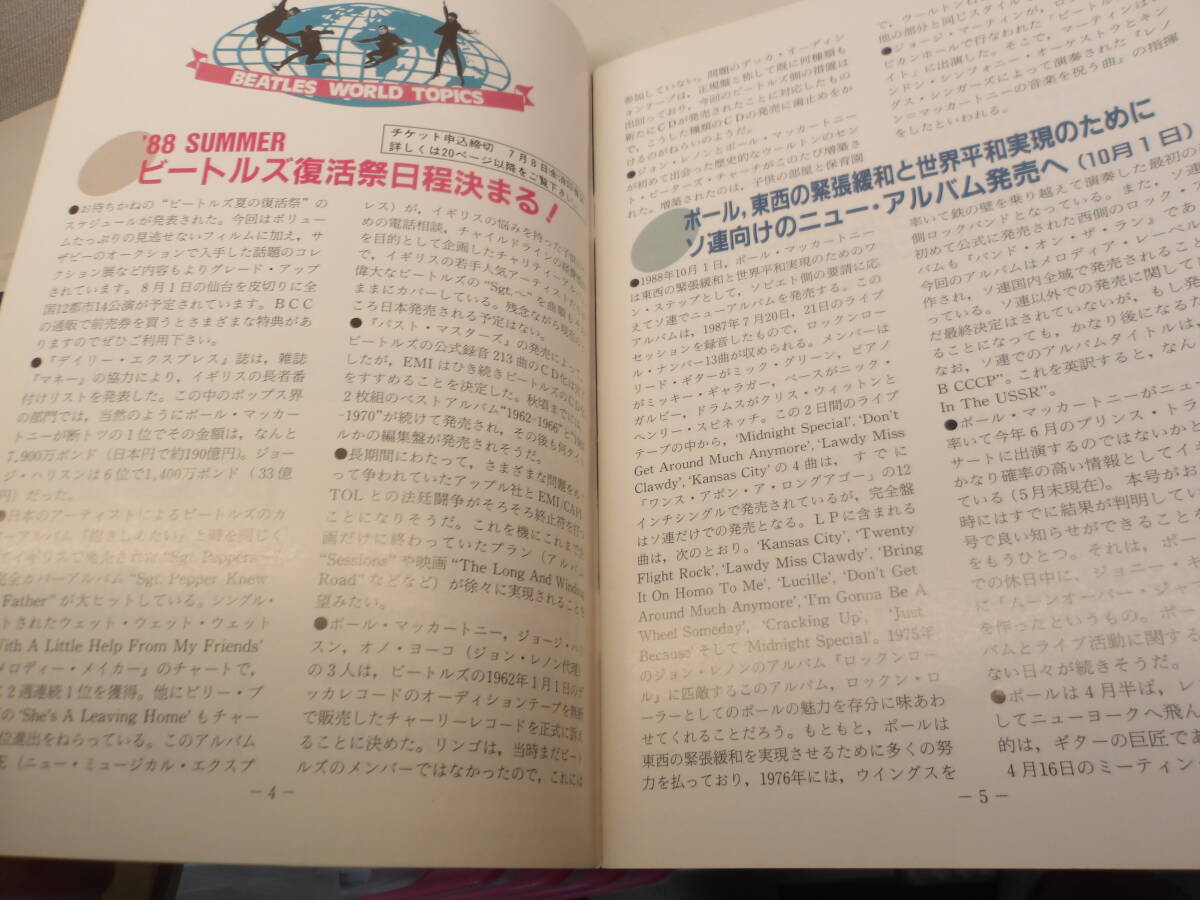 BEATLES WORLD TOPICS
'88 SUMMER
ビートルズ復活祭日程決まる!
チケット申込締切 7月8日
詳しくは20ページ以降をご覧下さい
●お待ちかねの“ビートルズ夏の復活祭”の
スケジュールが発表された。今回はボリュー
ムたっぷりの見逃せないフィルムに加え,サ
ザビーのオークションで入手した話題のコレ
クション展など内容もよりグレード・アップ
されています。8月1日の仙台を皮切りに全
国12都市14公演が予定されています。BCC
の通販で前売券を買うとさまざまな特典があ
りますのでぜひご利用下さい。
●『デイリー・エクスプレス』誌は,雑誌
『マネー』の協力により,イギリスの長者番
付けリストを発表した。この中のポップス界
の部門では,当然のようにポール・マッカー
トニーが断トツの1位でその金額は,なんと
7,900万ポンド(日本円で約190億円)。ジョー
ジ・ハリスンは6位で1,400万ポンド(33億
円)だった。
●日本のアーティストによるビートルズのカ
ーアルバム『抱きしめたい』と時を同じく
てイギリスで発売された“Sgt. Peppers
完全カバーアルバム“Sgt. Pepper Knew
Father”が大ヒットしている。シングル・
トされたウェット・ウェット・ウェット
With A Little Help From My Friends'
メロディー・メイカー』のチャートで,
2週連続1位を獲得。他にビリー・ブ
の‘She's A Leaving Home’もチャー
位進出をねらっている。このアルバム
死(ニュー・ミュージカル・エクスプ
レス)が,イギリスの悩みを持った子供
めの電話相談,チャイルドラインの
を目的として企画したチャリティーアルバ
で,イギリスの若手人気アーティストたち
偉大なビートルズの“Sgt.~”を曲順もその
ままにカバーしている。残念ながら現在の
ころ日本発売される予定はない。
●『パスト・マスターズ』の発売によって,
ビートルズの公式録音213曲のCD化は
したが,EMIはひき続きビートルズのCD
をすすめることを決定した。秋頃までには,
2枚組のベストアルバム“1962-1966”と“1967
-1970”が続けて発売され,その後も何タイト
ルかの編集盤が発売されそうだ。
●長期間にわたって,さまざまな問題を
って争われていたアップル社とEMI/CAPI
TOLとの法廷闘争がそろそろ終止符を打つ
ことになりそうだ。これを機にこれまで企
画だけに終わっていたプラン(アルバム
“Sessions”や映画“The Long And Winding
Road”などなど)が徐々に実現されることを
望みたい。
●ポール・マッカートニー,ジョージ・ハリ
スン,オノ・ヨーコ(ジョン・レノン代理)
の3人は,ビートルズの1962年1月1日のデ
ッカレコードのオーディションテープを無断
で販売したチャーリーレコードを正式に訴え
ることに決めた。リンゴは,当時まだビート
ルズのメンバーではなかったので,これには
−4−
参加していない。問題のデッカ・オーディシ
ョンテープは,正規盤と称して既に何種類も
出回っており,今回のビートルズ側の措置は
新たにCDが発売されたことに対応したもの
で,こうした種類のCDの発売に歯止めをか
けるのがねらいのようだ。
●ジョン・レノンとポール・マッカートニー
が初めて出会った歴史的なウールトンのセン
ト・ピーターズ・チャーチがこのたび増築さ
れた。増築されたのは,子供の部屋と保育園
で,ウールトン
他の部分と同じスタイルが,
●ジョージ・マーティンが,ロ
ビカンホールで行なわれた『ビートル
イト』に出演した。そこで,マーティンは
ンドン・シンフォニー・オーケストラとキン
グス・シンガーズによって演奏された『レノ
ン=マッカートニーの音楽を祝う曲』の指揮
をしたといわれる。
ポール,東西の緊張緩和と世界平和実現のために
ソ連向けのニュー・アルバム発売へ(10月1日)
●1988年10月1日,ポール・マッカートニー
は東西の緊張緩和と世界平和実現のためのワ
ン・ステップとして,ソビエト側の要請に応
えてソ連でニューアルバムを発売する。この
アルバムは,1987年7月20日,21日のライブ
セッションを録音したもので,ロックンロー
ル・ナンバー13曲が収められる。メンバーは
リード・ギターがミック・グリーン,ピアノ
がミッキー・ギャラガー,ベースがニック・
ガルビー,ドラムスがクリス・ウィットンと
ヘンリー・スピネッチ。この2日間のライブ
テープの中から,‘Midnight Special’,‘Don't
Get Around Much Anymore’,‘Lawdy Miss
Clawdy’,‘Kansas City’の4曲は,すでに
「ワンス・アポン・ア・ロングアゴー」の12
インチシングルで発売されているが,完全盤
はソ連だけでの発売となる。LPに含まれる
曲は,次のとおり。‘Kansas City’,‘Twenty
Flight Rock’,‘Lawdy Miss Clawdy’,‘Bring
It On Homo To Me’,‘Lucille’,‘Don't Get
Around Much Anymore’,‘I'm Gonna Be A
Wheel Someday’,‘Cracking Up’,‘Just
Because’そして‘Midnight Special’。1975年
のジョン・レノンのアルバム『ロックンロー
ル』に匹敵するこのアルバム,ロックン・ロ
ーラーとしてのポールの魅力を存分に味あわ
せてくれることだろう。もともと,ポールは
東西の緊張緩和を実現させるために多くの努
力を払っており,1976年には,ウイングスを
率いて鉄の壁を乗り越えて演奏した最初の
側ロックバンドとなっている。また,ソ連
初めて公式に発売された西側のロック
バムも『バンド・オン・ザ・ラン』であ
今回のアルバムはメロディア・レーベル
作され,ソ連国内全域で発売されること
ている。ソ連以外での発売に関しては
だ最終決定はされていないが,もし発
ることになっても,かなり後になる
なお,ソ連でのアルバムタイトルは,
B CCCP”。これを英訳すると,なん
In The USSR”。
●ポール・マッカートニーがニュー
率いて今年6月のプリンス・トラ
サートに出演するのではないかと
かなり確率の高い情報としてイギ
ている(5月末現在)。本号がお
時にはすでに結果が判明してい
号で良い知らせができることを
をもうひとつ。それは,ポー
での休日中に,ジョニー・キ
に『ムーンオーバー・ジャ
を作ったというもの。ポー
バムとライブ活動に関する
ない日々が続きそうだ。
●ポールは4月半ば,レ
してニューヨークへ飛ん
的は,ギターの巨匠であ
4月16日のミーティン
−5−